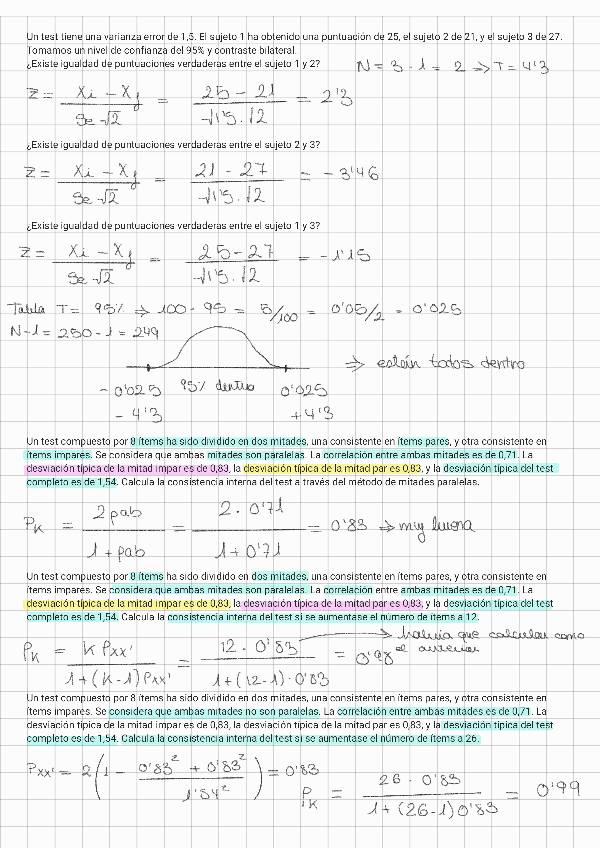 Un test tiene una varianza error de 1,5. El sujeto 1 ha obtenido una puntuación de 25, el sujeto 2 de 21, y el sujeto 3 de 27.
Tomamos un nivel de confianza del 95% y contraste bilateral.
¿Existe igualdad de puntuaciones verdaderas entre el sujeto 1 y 2? N = 3 - 1 = 2 ⇒ T = 4'3
Z = (Xi - Xj) / (Se √2) = (25 - 21) / (√1'5 · √2) = 2'3
¿Existe igualdad de puntuaciones verdaderas entre el sujeto 2 y 3?
Z = (Xi - Xj) / (Se √2) = (21 - 27) / (√1'5 · √2) = - 3'46
¿Existe igualdad de puntuaciones verdaderas entre el sujeto 1 y 3?
Z = (Xi - Xj) / (Se √2) = (25 - 27) / (√1'5 · √2) = - 1'15
Tabla T = 95% ⇒ 100 - 95 = 5/100 = 0'05/2 = 0'025
N - 1 = 250 - 1 = 249
⇒ están todos dentro
- 0'025 95% dentro 0'025
- 4'3 + 4'3
Un test compuesto por 8 ítems ha sido dividido en dos mitades, una consistente en ítems pares, y otra consistente en
ítems impares. Se considera que ambas mitades son paralelas. La correlación entre ambas mitades es de 0,71. La
desviación típica de la mitad impar es de 0,83, la desviación típica de la mitad par es 0,83, y la desviación típica del test
completo es de 1,54. Calcula la consistencia interna del test a través del método de mitades paralelas.
PK = 2ρab / (1 + ρab) = 2 · 0'71 / (1 + 0'71) = 0'83 → muy buena
Un test compuesto por 8 ítems ha sido dividido en dos mitades, una consistente en ítems pares, y otra consistente en
ítems impares. Se considera que ambas mitades son paralelas. La correlación entre ambas mitades es de 0,71. La
desviación típica de la mitad impar es de 0,83, la desviación típica de la mitad par es 0,83, y la desviación típica del test
completo es de 1,54. Calcula la consistencia interna del test si se aumentase el número de ítems a 12.
→ habría que calcular como el anterior
PK = K Pxx' / (1 + (K - 1) Pxx') = 12 · 0'83 / (1 + (12 - 1) · 0'83) = 0'98
Un test compuesto por 8 ítems ha sido dividido en dos mitades, una consistente en ítems pares, y otra consistente en
ítems impares. Se considera que ambas mitades no son paralelas. La correlación entre ambas mitades es de 0,71. La
desviación típica de la mitad impar es de 0,83, la desviación típica de la mitad par es 0,83, y la desviación típica del test
completo es de 1,54. Calcula la consistencia interna del test si se aumentase el número de ítems a 26.
Pxx' = 2 (1 - (0'83² + 0'83²) / 1'54²) = 0'83
PK = 26 · 0'83 / (1 + (26 - 1) 0'83) = 0'99